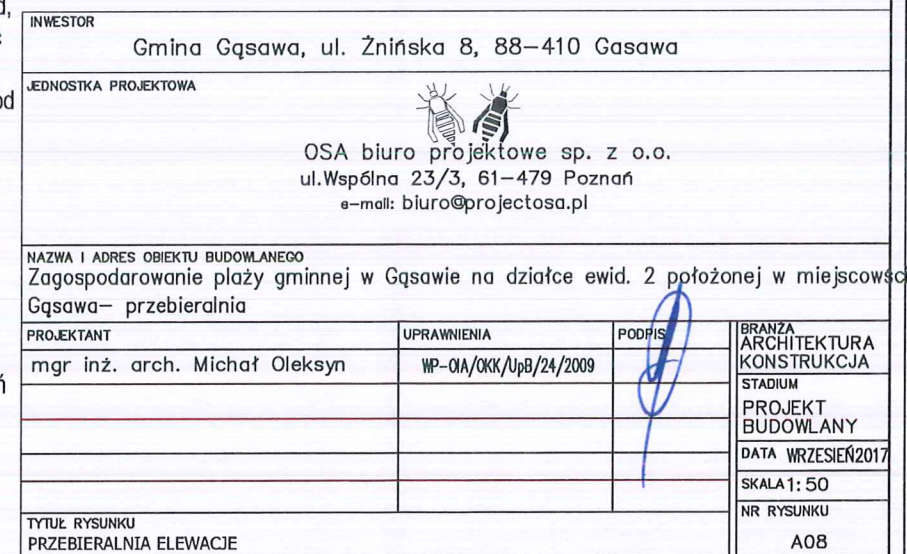 INWESTOR
Gmina Gąsawa, ul. Żnińska 8, 88–410 Gasawa
JEDNOSTKA PROJEKTOWA
od
OSA biuro projektowe sp. z o.o.
ul.Wspólna 23/3, 61–479 Poznań
e–mail: biuro@projectosa.pl
NAZWA I ADRES OBIEKTU BUDOWLANEGO
Zagospodarowanie plaży gminnej w Gąsawie na działce ewid. 2 położonej w miejscowści
Gąsawa– przebieralnia
PROJEKTANT
UPRAWNIENIA
PODPIS
mgr inż. arch. Michał Oleksyn
WP–OIA/OKK/UpB/24/2009
BRANŻA
ARCHITEKTURA
KONSTRUKCJA
STADIUM
PROJEKT
BUDOWLANY
DATA WRZESIEŃ2017
SKALA1: 50
NR RYSUNKU
A08
TYTUŁ RYSUNKU
PRZEBIERALNIA ELEWACJE